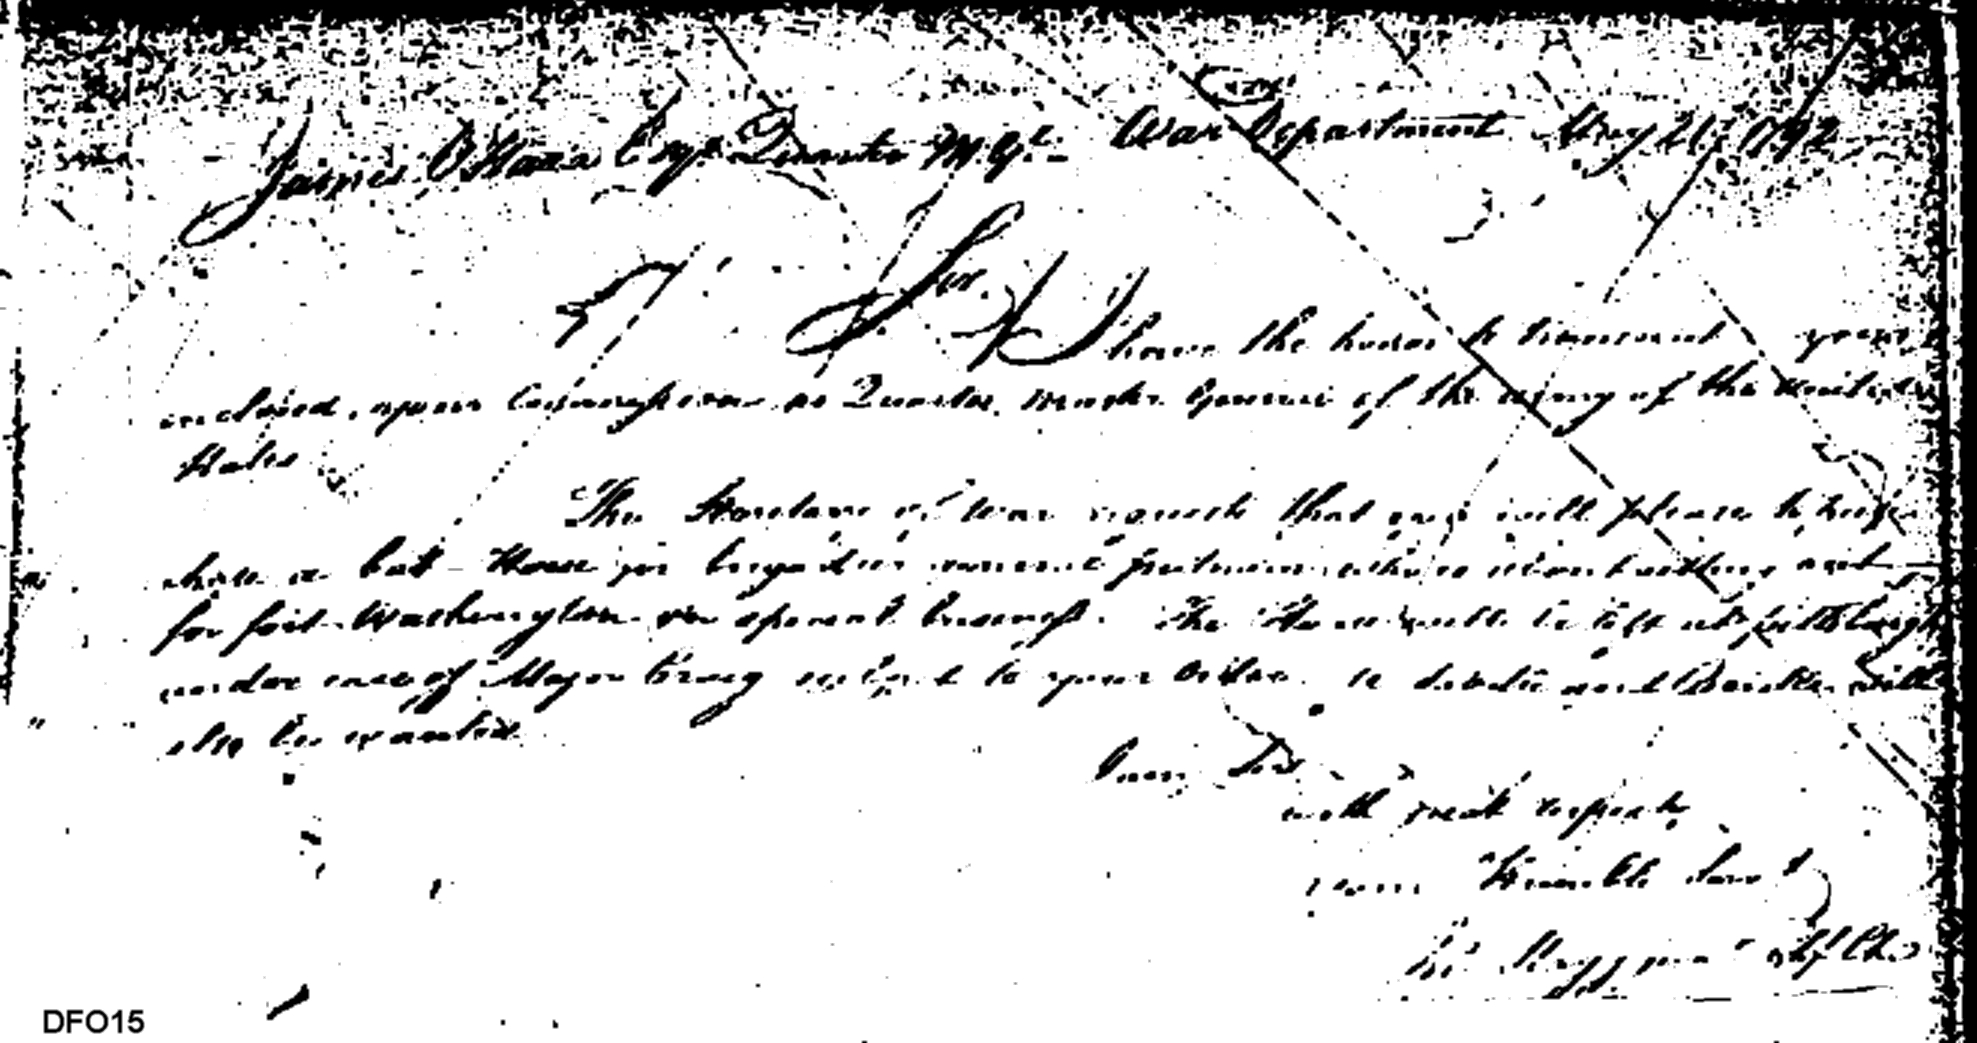 James O'Hara Esqr Quarter M Gl. War Department May 21, 1792
Sir,
I have the honor to transmit you
inclosed, your Commission as Quarter master General of the army of the United
States
The Secretary of War requests that you will please to pur
chase a bat Horse for brigadier general putnam who is about setting out
for fort Washington on special business. The Horse will be left at pittsburgh
under care of Major Craig subject to your order. a saddle and Bridle will
also be wanted
I am, Sir
with great respect,
your Humble Servt
Jno Stagg junr Chf Clk.
DFO15